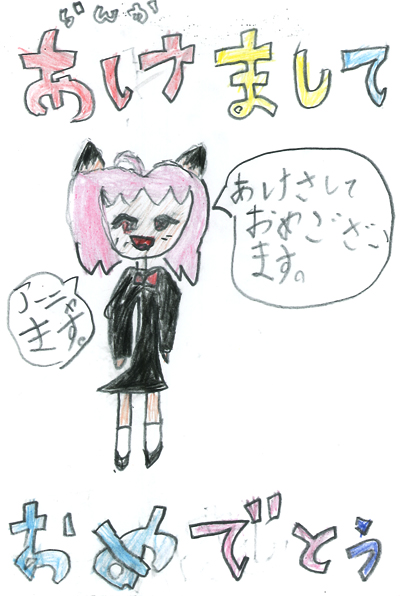 あけまして
あけまして
おめござい
ます。
アーニャ
ます。
おめでとう